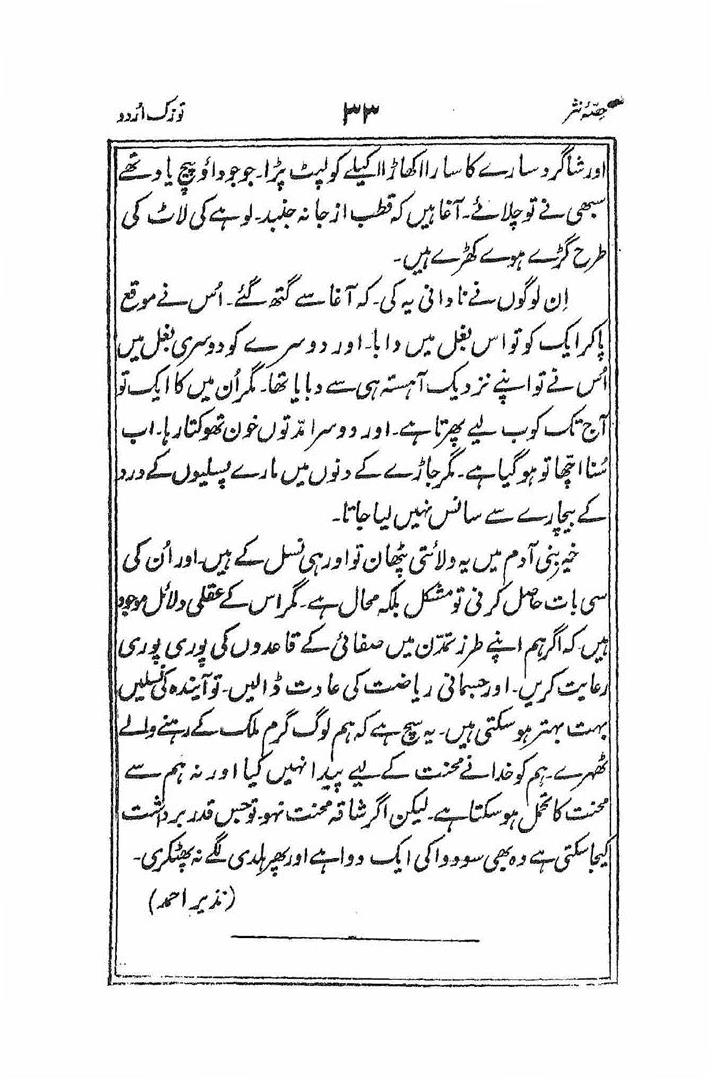 حصّہ نثر ۳۳ توزک اُردو
اور شاگرد سارے کا سارا اکھاڑا اکیلے کو لپٹ پڑا۔ جو جو داؤ پیچ یاد تھے
سبھی نے تو چلائے۔ آغا ہیں کہ قطب از جا نہ جنبد۔ لوہے کی لاٹ کی
طرح گڑے ہوے کھڑے ہیں۔
اِن لوگوں نے نادانی یہ کی۔ کہ آغا سے گتھ گئے۔ اُس نے موقع
پاکر ایک کو تو اس بغل میں دابا۔ اور دوسرے کو دوسری بغل میں
اُس نے تو اپنے نزدیک آہستہ ہی سے دبایا تھا۔ مگر اُن میں کا ایک تو
آج تک کوب لیے پھرتا ہے۔ اور دوسرا مدّتوں خون تھوکتا رہا۔ اب
سُنا اچّھا تو ہو گیا ہے۔ مگر جاڑے کے دنوں میں مارے پسلیوں کے درد
کے بیچارے سے سانس نہیں لیا جاتا۔
خیر بنی آدم میں یہ ولائتی پٹھان تو اور ہی نسل کے ہیں۔ اور اُن کی
سی بات حاصل کرنی تو مشکل بلکہ محال ہے۔ مگر اس کے عقلی دلائل موجود
ہیں کہ اگر ہم اپنے طرز تمدّن میں صفائی کے قاعدوں کی پوری پوری
رعایت کریں۔ اور جسمانی ریاضت کی عادت ڈالیں۔ تو آیندہ کی نسلیں
بہت بہتر ہو سکتی ہیں۔ یہ سچ ہے کہ ہم لوگ گرم ملک کے رہنے والے
ٹھہرے۔ ہم کو خدا نے محنت کے لیے پیدا نہیں کیا اور نہ ہم سے
محنت کا تحمل ہو سکتا ہے۔ لیکن اگر شاقہ محنت نہو۔ تو جس قدر برداشت
کیجا سکتی ہے وہ بھی سو دوا کی ایک دوا ہے اور پھر ہلدی لگے نہ پھٹکری۔
(نذیر احمد)